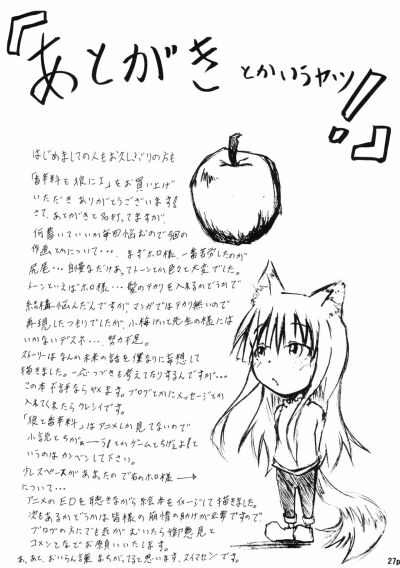 『あとがきとかいうヤツ!!』
はじめましての人もお久しぶりの方も
「香辛料と狼にI」をお買い上げ
いただき ありがとうございます!
さて、あとがきと名打ってますが、
何書いていいか毎回悩むので今回の
作画とかについて・・・。まずホロ様、一番苦労したのが
尻尾・・・ 自慢なだけあってトーンとか色々と大変でした。
トーンといえばホロ様・・・ 髪のテカリを入れるかどうかで
結構悩んだんですが、マンガではテカリ無いので
再現したつもりでしたが、小梅けいと先生の様には
いかないデスネ・・・。努力不足。
ストーリーはなんか未来の話を僕なりに妄想して
描きました。一応つづきも考えてたりするんですが・・・
この本不評ならヤメます。ブログとかにメッセージとか
入れてくれたらウレシイです。
「狼と香辛料」はアニメしか見てないので
小説とちがぁーう!とかゲームとちげぇよ!と
いうのはカンベンして下さい。
少しスペースがあまったので右のホロ様→
について・・・
アニメのEDを聴きながら絵本をイメージして描きました。
次もあるかどうかは皆様の
助けが必要ですので
ブログの方にでも
御意見と
コメントなどお願いいたします。
あ、あと、おいらん言葉まちがってると思います、スイマセンです。
27p